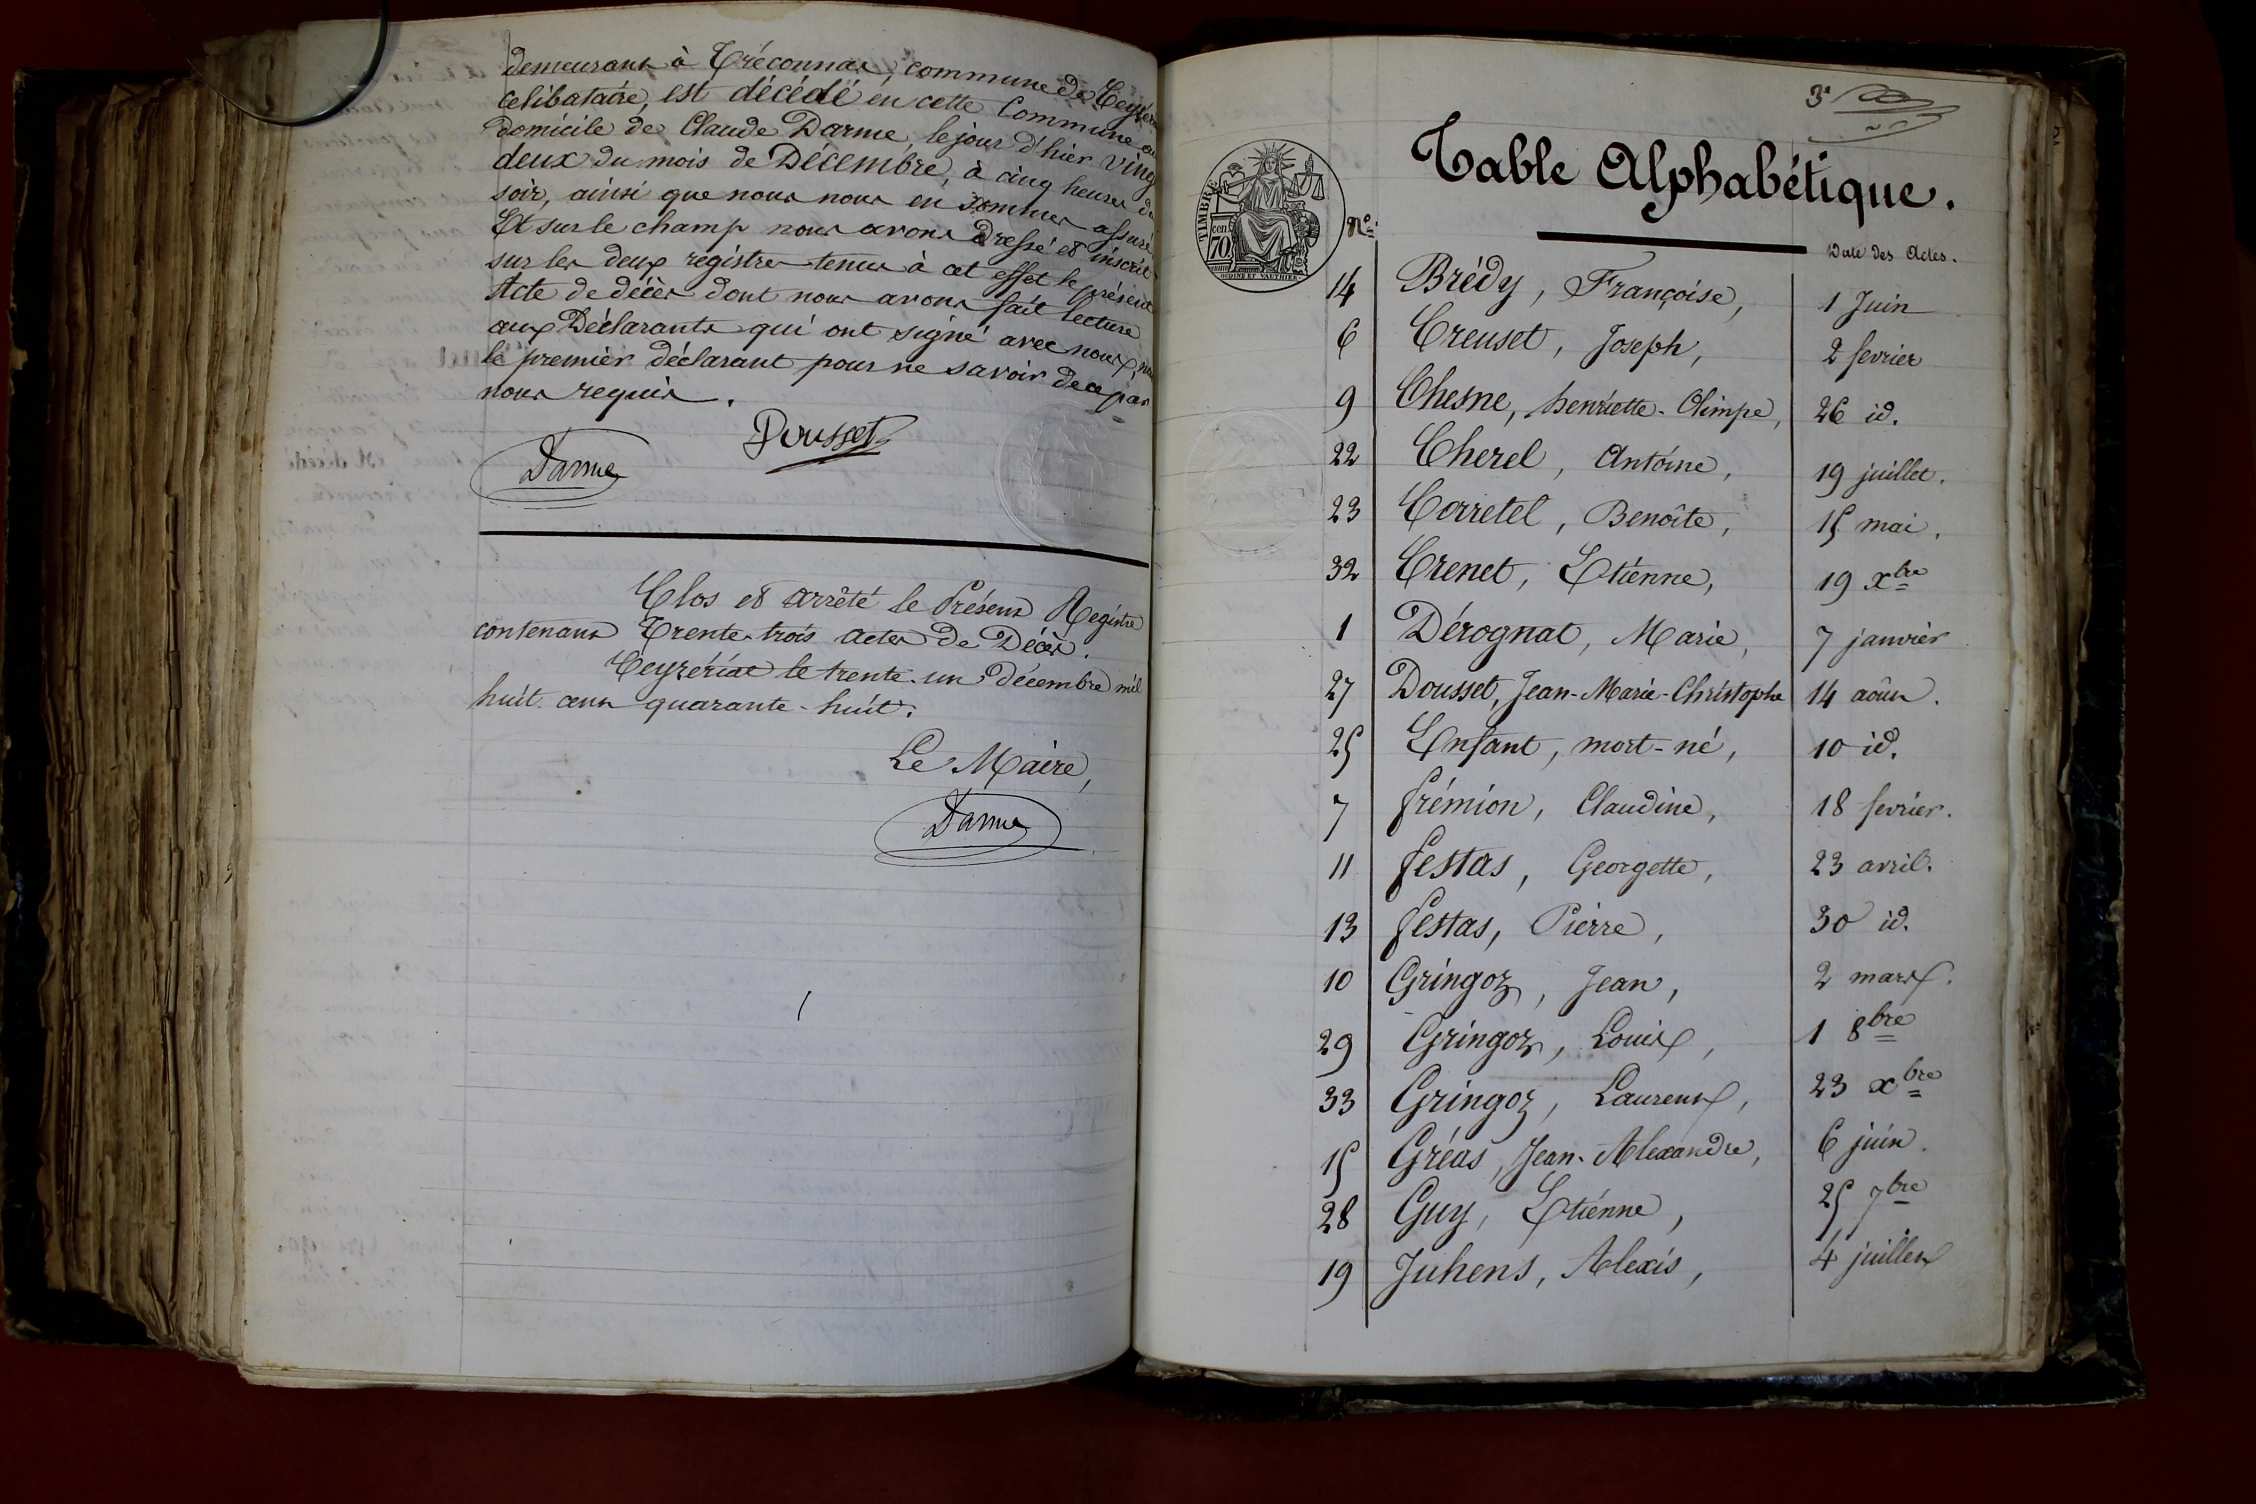 demeurant à Tréconnas, commune de Ceyzér
celibataire, est décédé en cette Commune au
domicile de Claude Darme, le jour d'hier vingt
deux du mois de Décembre, à cinq heures du
soir, ainsi que nous nous en sommes assuré
Et sur le champ nous avons dressé et inscrit
sur les deux régistres tenus à cet effet le présent
Acte de décès dont nous avons fait lecture
aux Déclarants qui ont signé avec nous, non
le premier déclarant pour ne savoir de ce par
nous requis.
Dousset
Darme
Clos et arrêté le Présent Régistre
contenant Trente-trois actes de Décès.
Ceyzériat le trente-un décembre mil
huit cent quarante-huit.
Le Maire,
Darme
3e
Table Alphabétique.
TIMBRE
70 cen
OUDINE ET VAUTHIER
No. Date des Actes.
14 Brédy, Françoise, 1 Juin
6 Creuset, Joseph, 2 fevrier
9 Chesne, henriette-Olimpe, 26 id.
22 Cherel, Antoine, 19 juillet.
23 Corretel, Benoîte, 15 mai.
32 Crenet, Etienne, 19 xbre
1 Dérognat, Marie, 7 janvier
27 Dousset, Jean-Marie-Christophe 14 août.
25 Enfant, mort-né, 10 id.
7 frémion, Claudine, 18 fevrier.
11 festas, Georgette, 23 avril.
13 festas, Pierre, 30 id.
10 Gringoz, Jean, 2 mars.
29 Gringoz, Louis, 1 8bre
33 Gringoz, Laurent, 23 xbre
15 Gréas, Jean-Alexandre, 6 juin.
28 Guy, Etienne, 25 7bre
19 Juhens, Alexis, 4 juillet